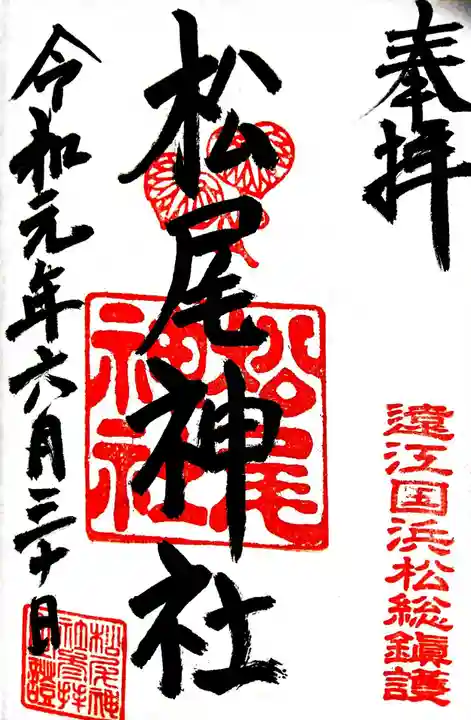 奉拝
遠江国浜松総鎮護
松尾神社
松尾神社
令和元年六月三十日
松尾神社参拝之證